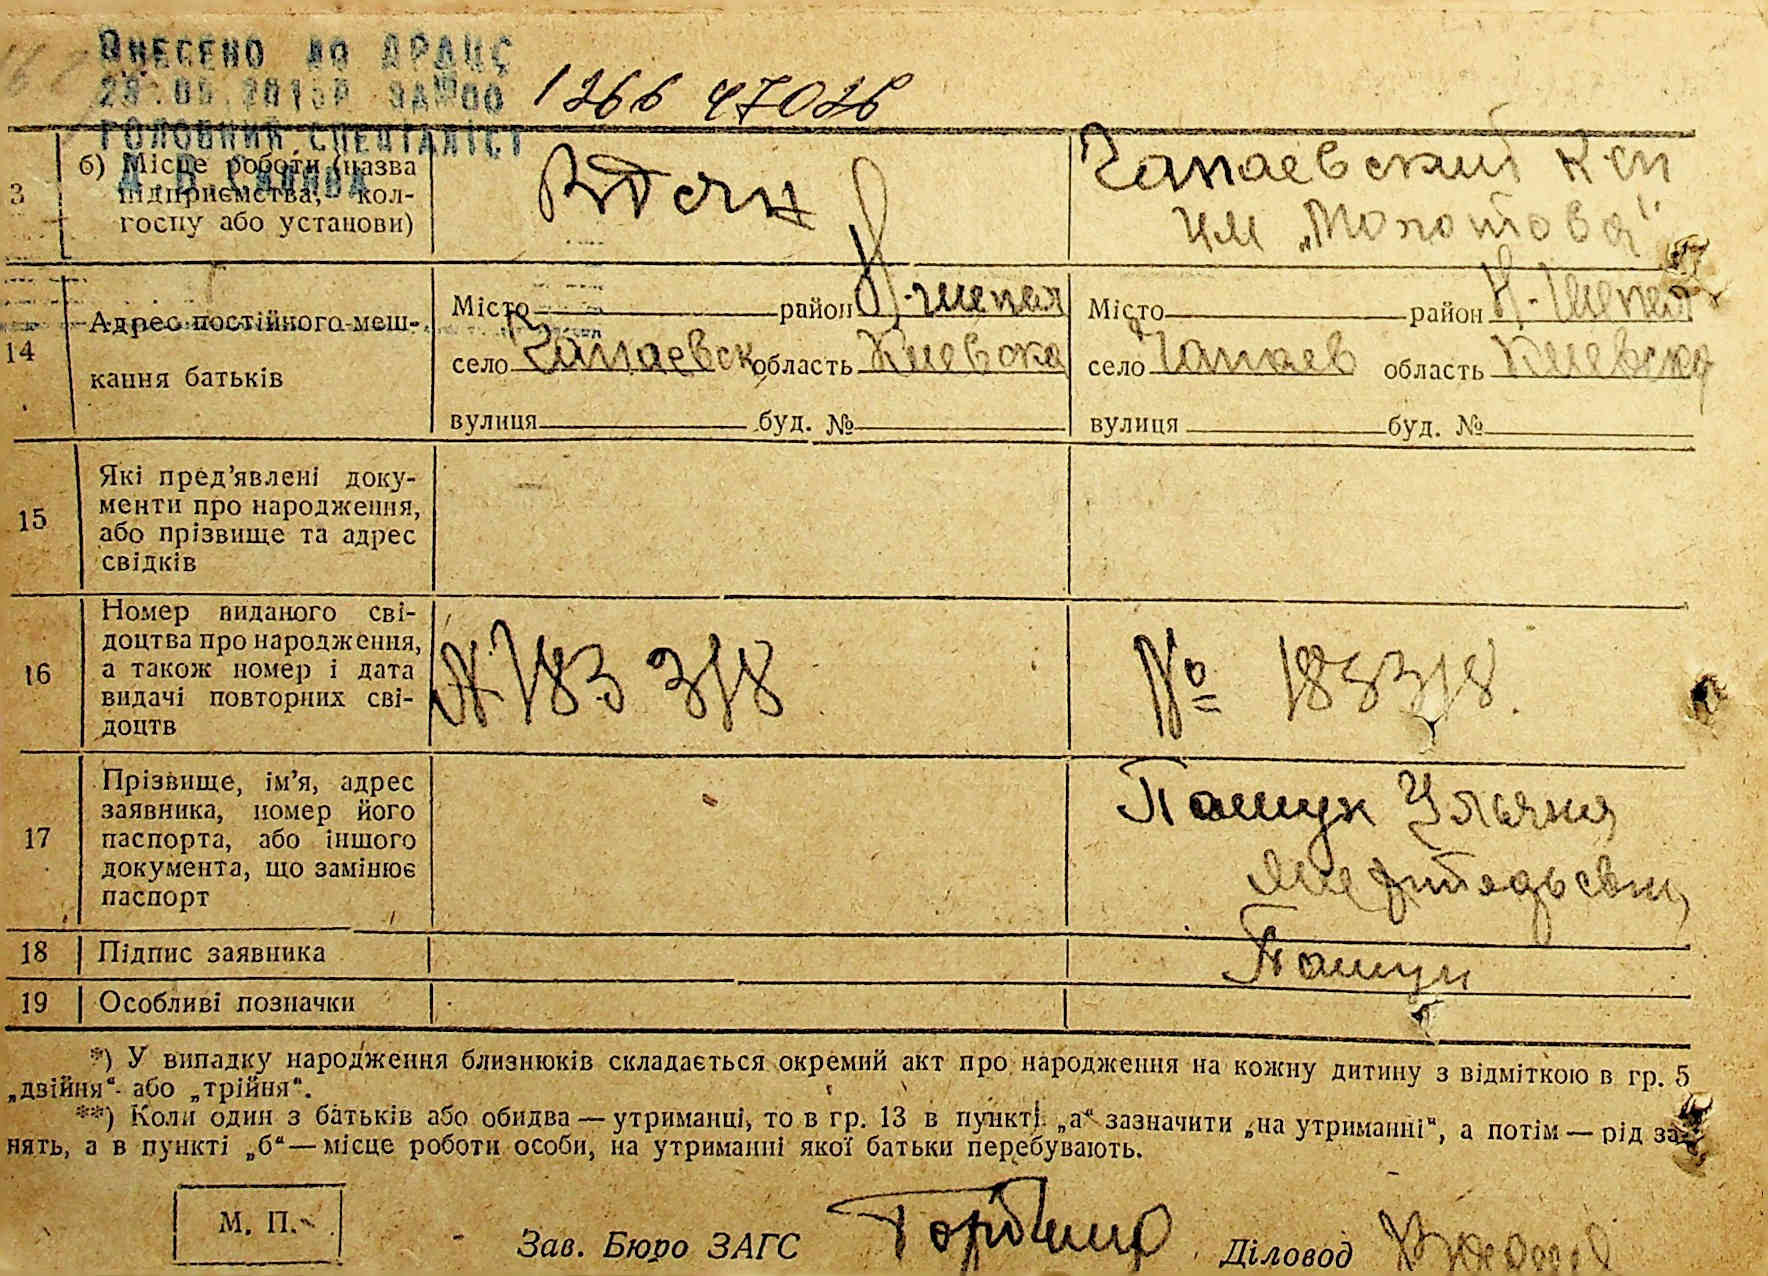 ВНЕСЕНО ДО ДРАЦС
ГОЛОВНИЙ СПЕЦІАЛІСТ
1266 47026
3 б) Місце роботи (назва підприємства, кол-
госпу або установи)
Чапаевский
им „Молотова"
14 Адрес постійного меш-
кання батьків
Місто район
село Чапаевск область Киевска
вулиця буд. №
Місто район
село Чапаев область Киевска
вулиця буд. №
15 Які пред'явлені доку-
менти про народження,
або прізвище та адрес
свідків
16 Номер виданого сві-
доцтва про народження,
а також номер і дата
видачі повторних сві-
доцтв
№ 183318
№ 183318.
17 Прізвище, ім'я, адрес
заявника, номер його
паспорта, або іншого
документа, що замінює
паспорт
Пашук Ульяна
18 Підпис заявника
Пашук
19 Особливі позначки
*) У випадку народження близнюків складається окремий акт про народження на кожну дитину з відміткою в гр. 5
„двійня" або „трійня".
**) Коли один з батьків або обидва — утриманці, то в гр. 13 в пункті „а" зазначити „на утриманні", а потім — рід за-
нять, а в пункті „б" — місце роботи особи, на утриманні якої батьки перебувають.
М. П.
Зав. Бюро ЗАГС
Діловод